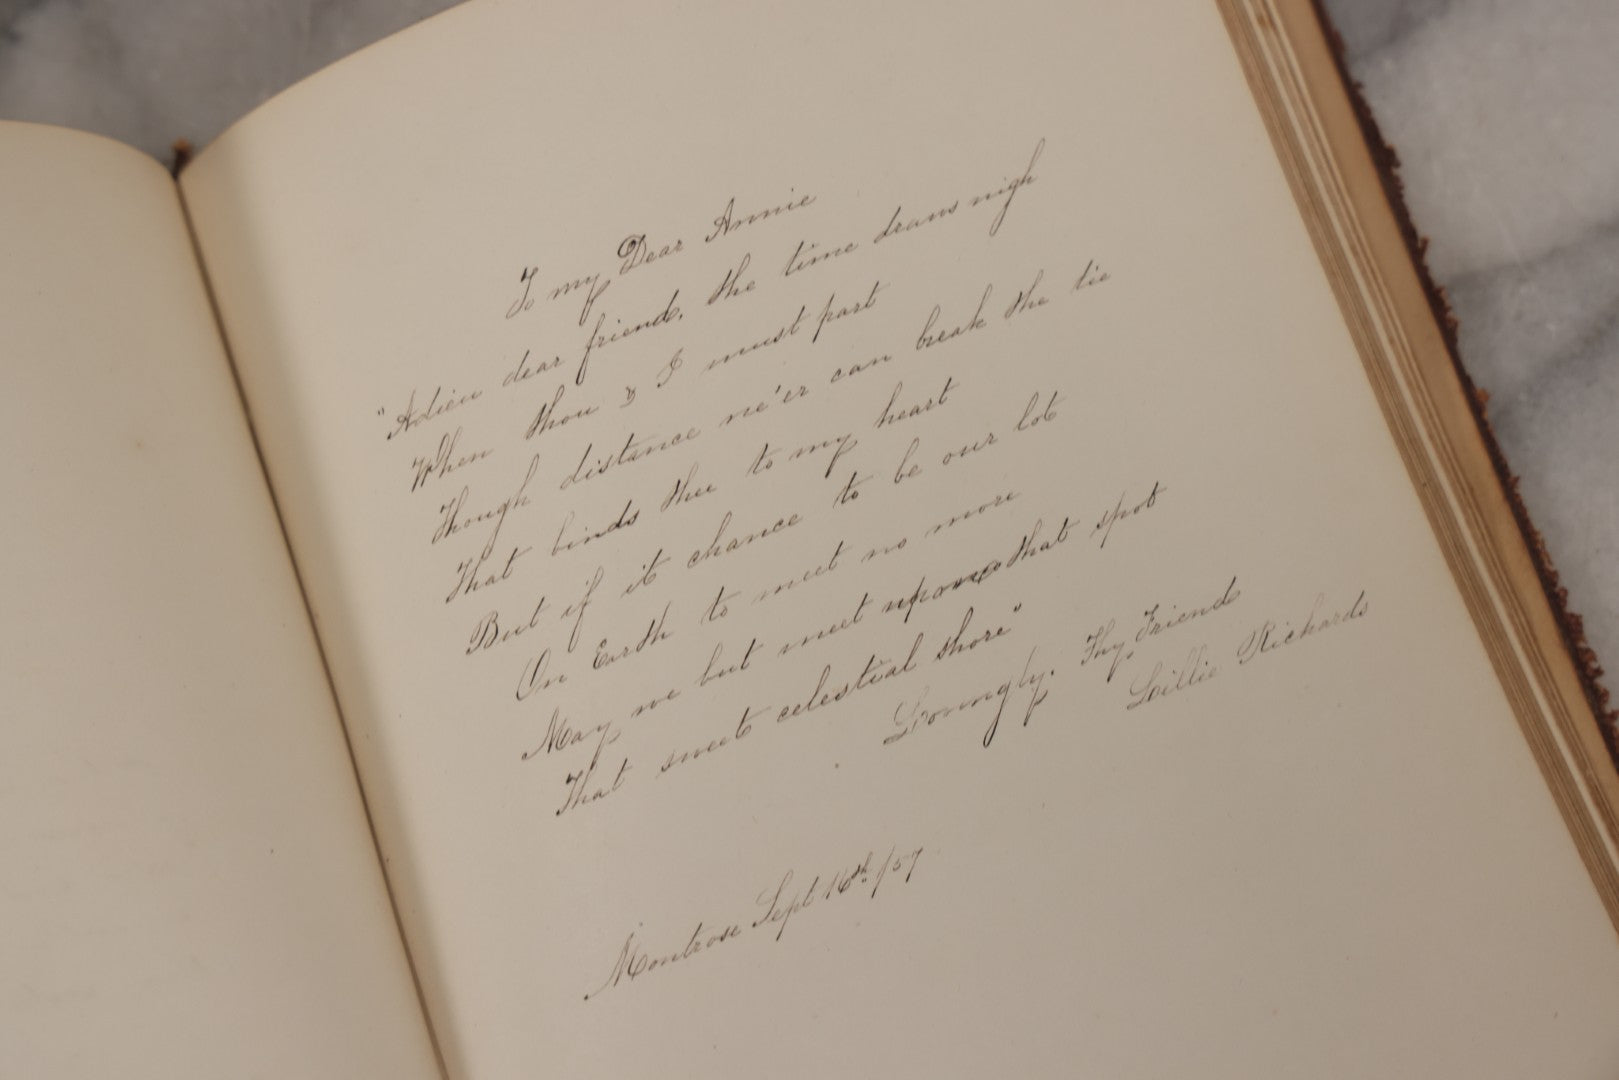 To my Dear Annie
"Adieu dear friend, the time draws nigh
When thou & I must part
Though distance ne'er can break the tie
That binds thee to my heart
But if it chance to be our lot
On Earth to meet no more
May we but meet upon that spot
That sweet celestial shore"
Lovingly. Thy Friend
Lillie Richards
Montrose Sept 16th /57